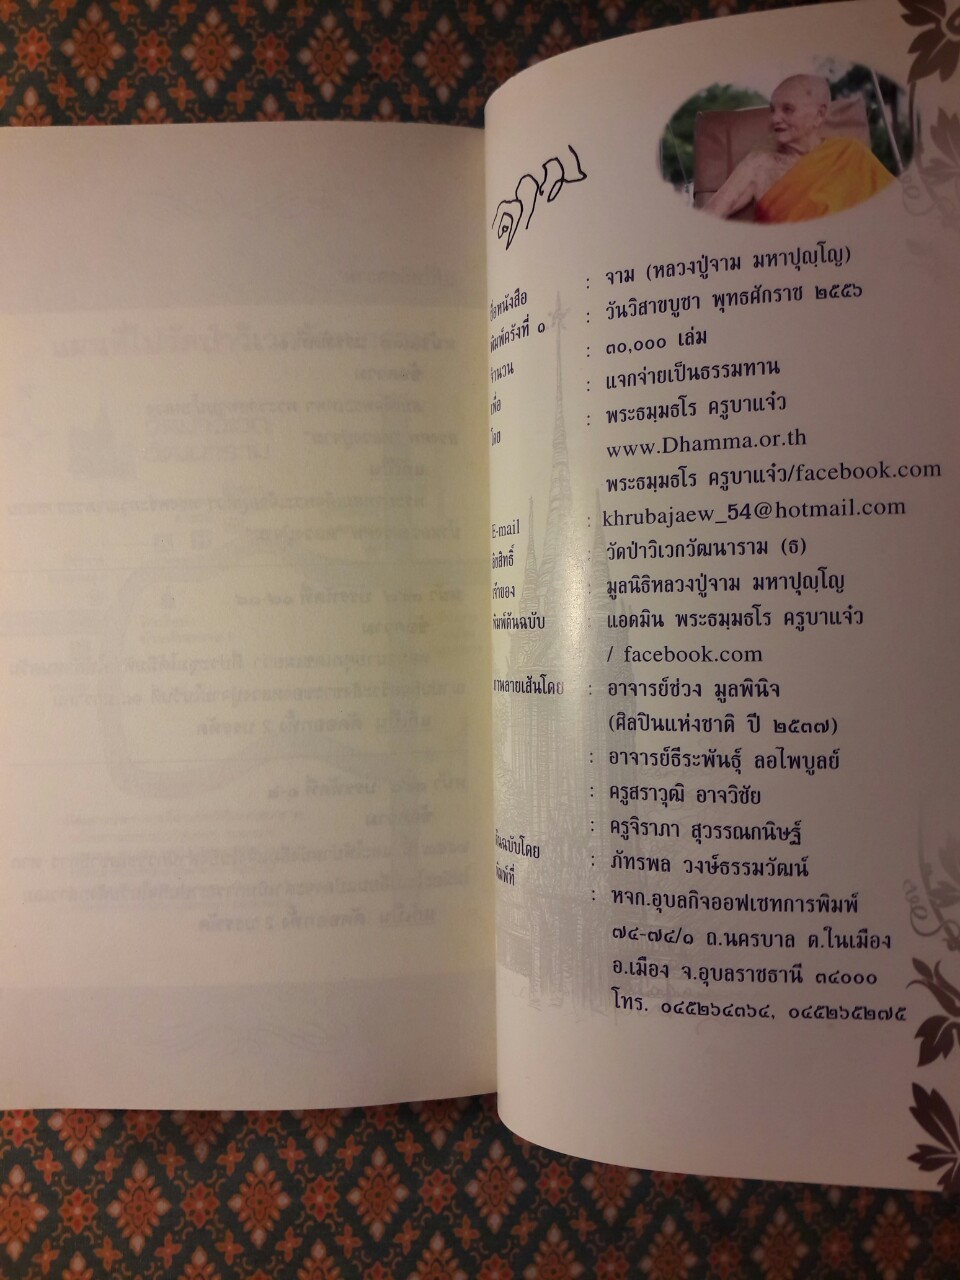 จาม
ชื่อหนังสือ : จาม (หลวงปู่จาม มหาปุญฺโญ)
พิมพ์ครั้งที่ ๑ : วันวิสาขบูชา พุทธศักราช ๒๕๕๖
จำนวน : ๓๐,๐๐๐ เล่ม
เพื่อ : แจกจ่ายเป็นธรรมทาน
โดย : พระธมฺมธโร ครูบาแจ๋ว
www.Dhamma.or.th
พระธมฺมธโร ครูบาแจ๋ว/facebook.com
E-mail : khrubajaew_54@hotmail.com
ลิขสิทธิ์ : วัดป่าวิเวกวัฒนาราม (ธ)
เจ้าของ : มูลนิธิหลวงปู่จาม มหาปุญฺโญ
พิมพ์ต้นฉบับ : แอดมิน พระธมฺมธโร ครูบาแจ๋ว
/ facebook.com
ภาพลายเส้นโดย : อาจารย์ช่วง มูลพินิจ
(ศิลปินแห่งชาติ ปี ๒๕๓๗)
: อาจารย์ธีระพันธุ์ ลอไพบูลย์
: ครูสราวุฒิ อาจวิชัย
: ครูจิราภา สุวรรณกนิษฐ์
ต้นฉบับโดย : ภัทรพล วงษ์ธรรมวัฒน์
พิมพ์ที่ : หจก.อุบลกิจออฟเซทการพิมพ์
๗๔-๗๔/๑ ถ.นครบาล ต.ในเมือง
อ.เมือง จ.อุบลราชธานี ๓๔๐๐๐
โทร. ๐๔๕๒๖๔๓๖๔, ๐๔๕๒๖๕๒๗๕